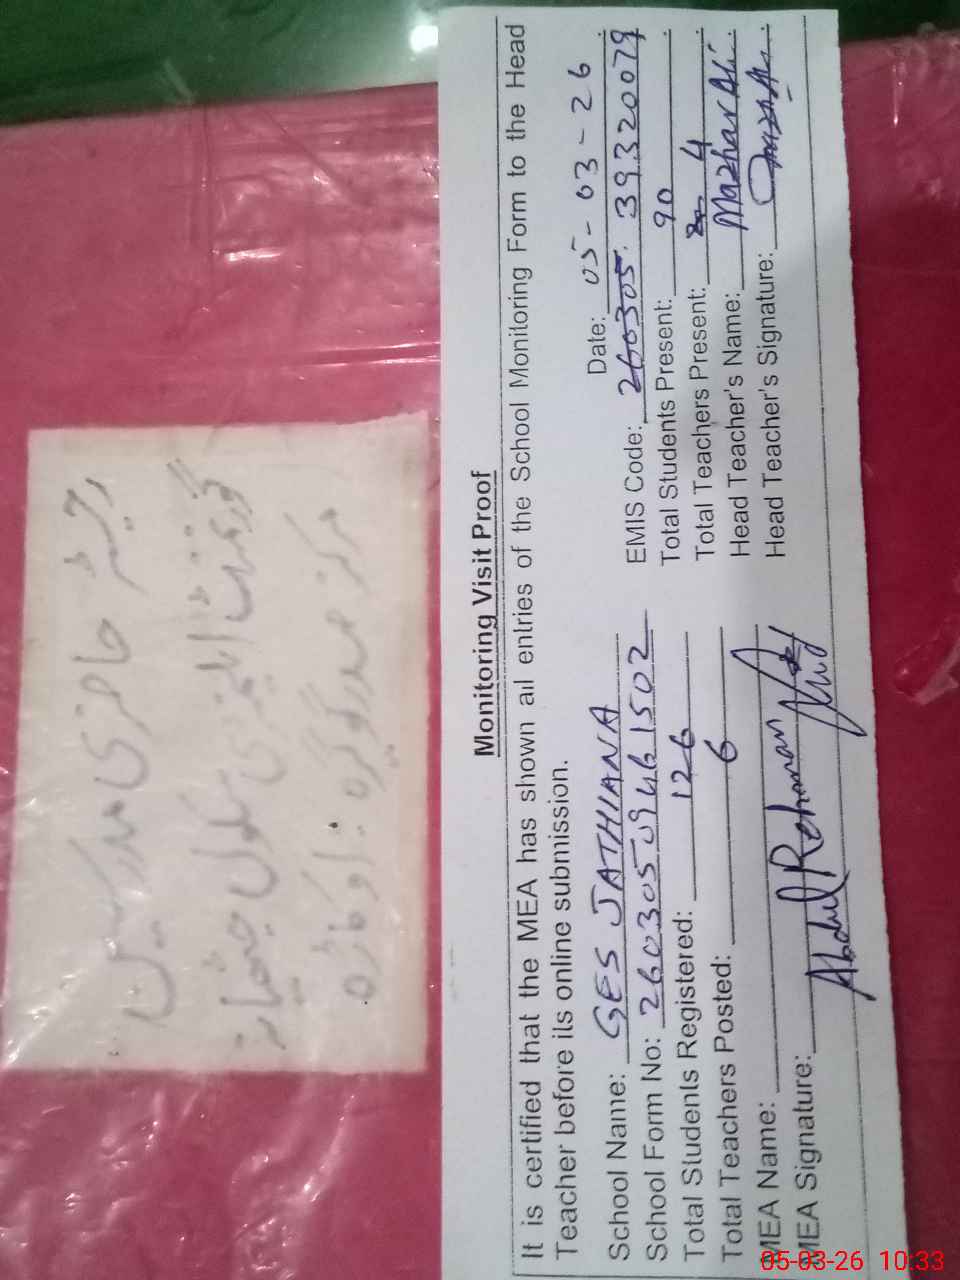 رجسٹر حاضری مدرسین
گورنمنٹ ایلیمنٹری سکول جیٹھیانہ
مرکز صدر گوگیرہ . اوکاڑہ
Monitoring Visit Proof
It is certified that the MEA has shown all entries of the School Monitoring Form to the Head
Teacher before its online submission.
Date: 05-03-26
School Name: GES JATHIANA
EMIS Code: 260305. 39320079
School Form No: 2603050946 1502
Total Students Present: 90
Total Students Registered: 126
Total Teachers Present: 4
Total Teachers Posted: 6
Head Teacher's Name: Mazhar Ali
MEA Name: Abdul Rehman
Head Teacher's Signature:
MEA Signature:
05-03-26 10:33